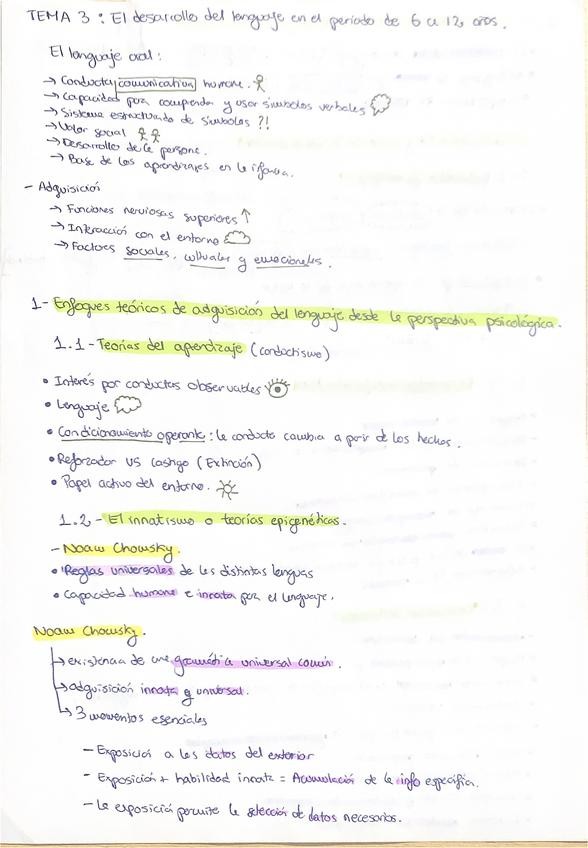 TEMA 3 : El desarrollo del lenguaje en el periodo de 6 a 12 años.
El lenguaje oral :
→ Conducta comunicativa humana.
→ Capacidad para comprender y usar símbolos verbales
→ Sistema estructurado de símbolos ?!
→ Valor social
→ Desarrollo de la persona.
→ Base de los aprendizajes en la infancia.
- Adquisición
→ Funciones nerviosas superiores ↑
→ Interacción con el entorno
→ Factores sociales, culturales y emocionales.
1- Enfoques teóricos de adquisición del lenguaje desde la perspectiva psicológica.
1.1- Teorías del aprendizaje (conductismo)
• Interés por conductas observables
• Lenguaje
• Condicionamiento operante : la conducta cambia a partir de los hechos.
• Reforzador VS Castigo (Extinción)
• Papel activo del entorno.
1.2- El innatismo o teorías epigenéticas.
- Noam Chomsky.
• Reglas universales de las distintas lenguas
• Capacidad humana e innata para el lenguaje.
Noam Chomsky.
→ existencia de una gramática universal común.
→ adquisición innata y universal.
→ 3 momentos esenciales
- Exposición a los datos del exterior
- Exposición + habilidad innata = Acumulación de la info específica.
- La exposición permite la selección de datos necesarios.